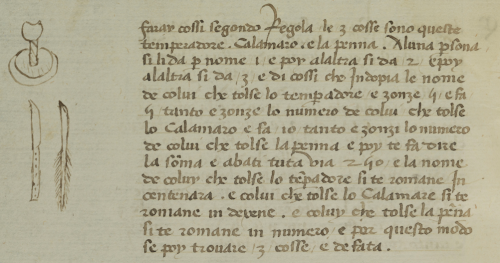 faray cossi segondo Regola le 3 cosse sono queste
temperadore. Calamaro. e la penna. Aluna psona
si li da p nome 1 / e poy alaltra si da 2 / e poy
alaltra si da /3/ e di cossi che Indopia le nome
de colui che tolse lo temperadore e zonze 5 / e fa
5 tanto e zonze lo numero de colui che tolse
lo Calamaro e fa /10 tanto e zonzi lo numero
de colui che tolse la penna e poy te fa dire
la soma e abati tuta via 250 / e la nome
de coluy che tolse lo tepadore si te romane In
centenara. e colui che tolse lo Calamare si te
romane in decene. e coluy che tolse la pena
si te romane in numero / e per questo modo
se poy trovare /3/ cosse / e de fata.